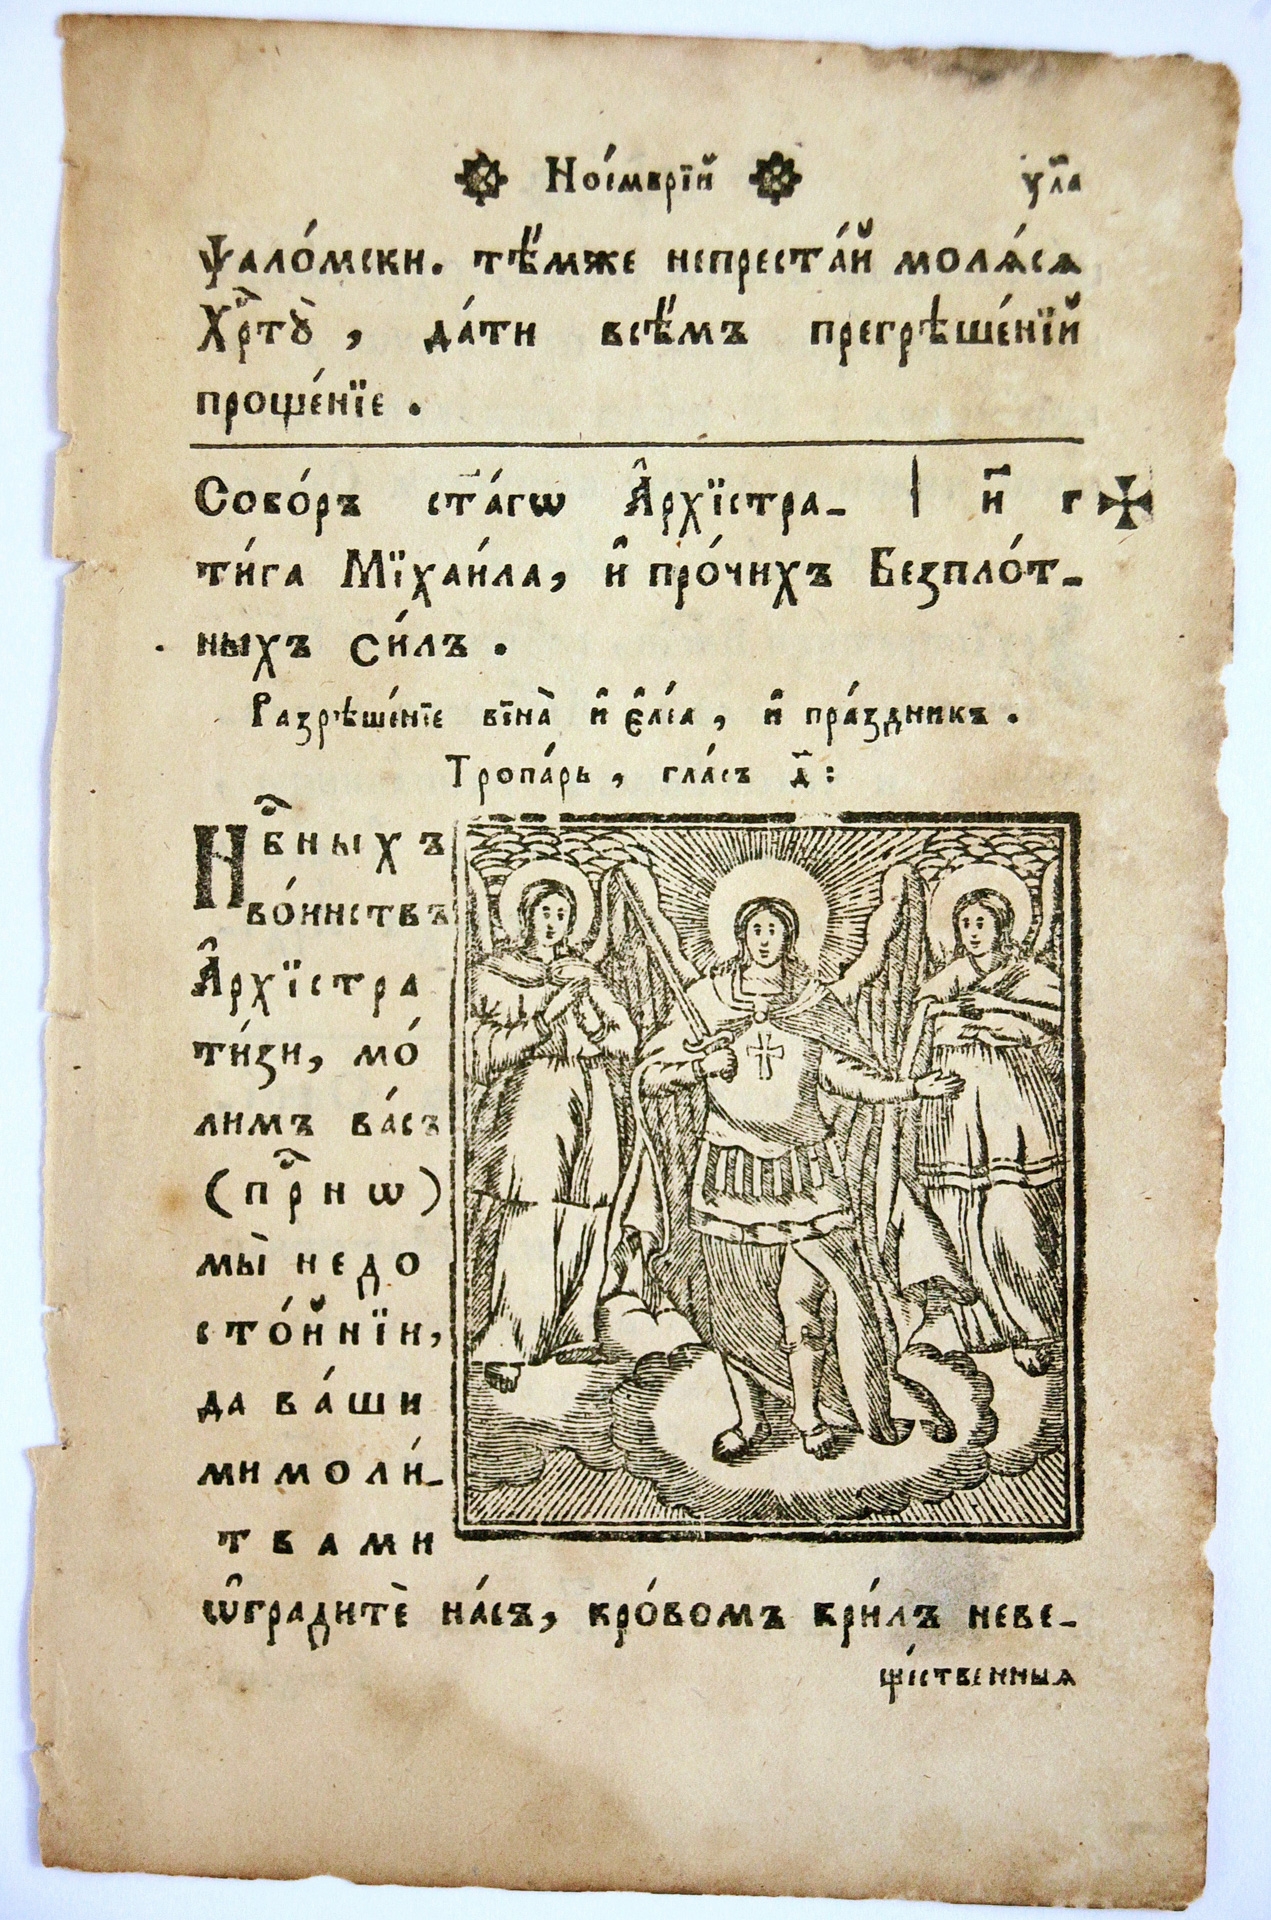 Ное́мврїй у҃ла
Ѱало́мски. тѣ́мже непреста́й моля́сѧ
Хрⷭ҇тꙋ̀, да́ти всѣ́мъ прегрѣше́нїй
проще́нїе.
Собо́ръ ст҃а́гѡ А҆рхїстра- | и҃ г
ти́га Мїхаи́ла, и҆ про́чихъ Безпло́т-
ныхъ си́лъ.
Разрѣше́нїе вїна̀ и҆ є҆ле́а, и҆ пра́здникъ.
Тропа́рь, гла́съ д҃:
Нбⷭ҇ныхъ
во́инствъ
А҆рхїстра
ти́зи, мо́
лимъ ва́съ
(прⷭ҇нѡ)
мы̀ недо
сто́йнїи,
да ва́ши
ми моли́-
твами
ѡ҆градитѐ на́съ, кро́вомъ кри́лъ неве-
ще́ственныя